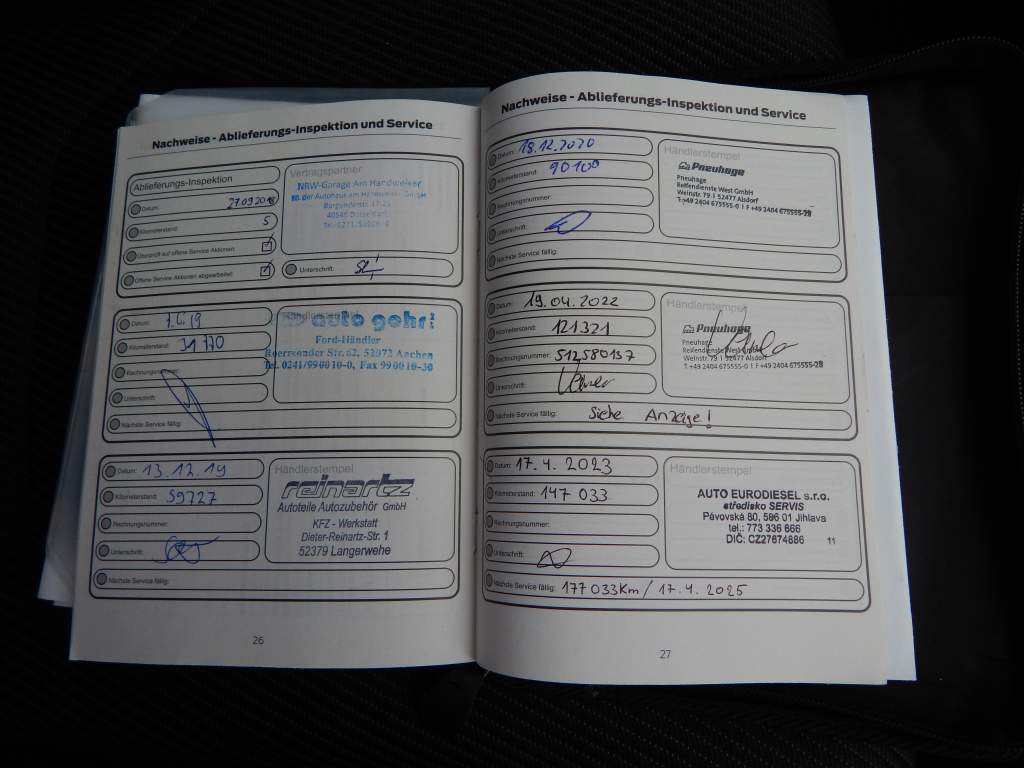 Nachweise - Ablieferungs-Inspektion und Service
Ablieferungs-Inspektion
Datum: 27.09.2018
Kilometerstand: 5
Überprüft auf offene Service Aktionen:
Offene Service Aktionen abgearbeitet:
Vertragspartner
NRW-Garage Am Handweiser
Unterschrift:
Datum:
Kilometerstand:
Rechnungsnummer:
Unterschrift:
Nächste Service fällig:
Händlerstempel
auto gohr
Ford-Händler
Roermonder Str. 62, 52072 Aachen
Tel. 0241/99 00 10-0, Fax 99 00 10-30
Datum: 13.12.19
Kilometerstand: 59727
Rechnungsnummer:
Unterschrift:
Nächste Service fällig:
Händlerstempel
reinartz
Autoteile Autozubehör GmbH
KFZ - Werkstatt
Dieter-Reinartz-Str. 1
52379 Langerwehe
26
Nachweise - Ablieferungs-Inspektion und Service
Datum: 18.12.2020
Kilometerstand: 90100
Rechnungsnummer:
Unterschrift:
Nächste Service fällig:
Händlerstempel
Pneuhage
Pneuhage
Reifendienste West GmbH
Weinstr. 79 I 52477 Alsdorf
T +49 2404 675555-0 I F +49 2404 675555-28
Datum: 19.04.2022
Kilometerstand: 121321
Rechnungsnummer: 512580137
Unterschrift:
Nächste Service fällig: Siehe Anzeige!
Händlerstempel
Pneuhage
Pneuhage
Reifendienste West GmbH
Weinstr. 79 I 52477 Alsdorf
T +49 2404 675555-0 I F +49 2404 675555-28
Datum: 17.4.2023
Kilometerstand: 147 033
Rechnungsnummer:
Unterschrift:
Nächste Service fällig: 177 033Km / 17.4.2025
Händlerstempel
AUTO EURODIESEL s.r.o.
středisko SERVIS
Pávovská 80, 586 01 Jihlava
tel.: 773 336 666
DIČ: CZ27674886 11
27